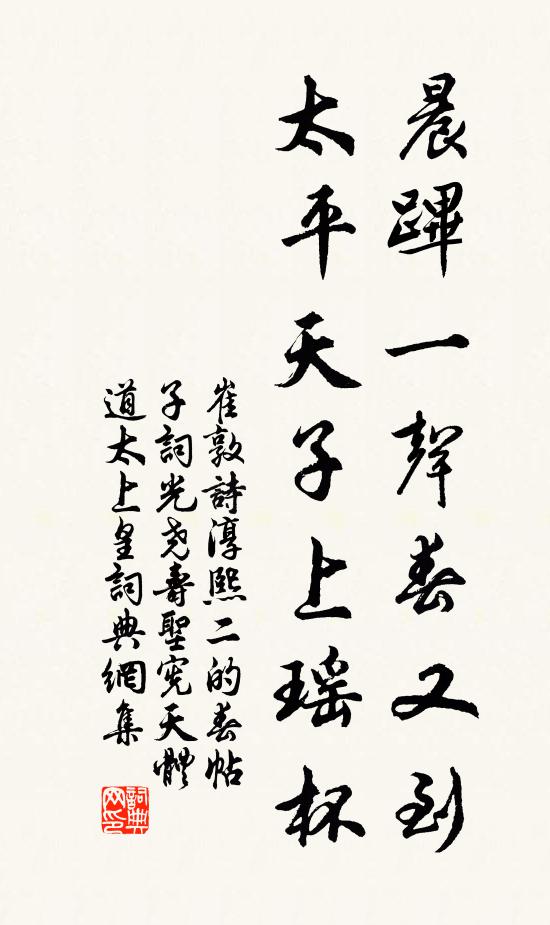 晨蹕一聲春又到
太平天子上瑶杯
崔敦詩淳熙二的春帖
子詞光尧壽聖憲天體
道太上皇詞典網集
詞典网印